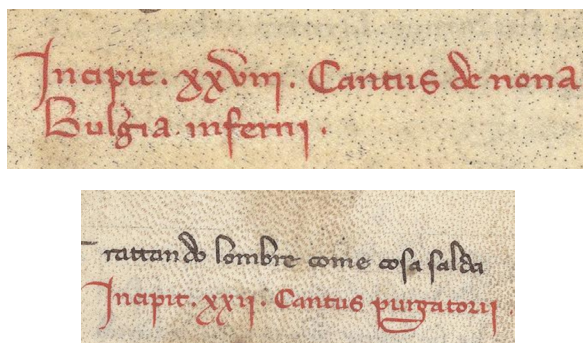 Incipit. xxviii. Cantus de nona
Bulgia. inferni.
Trattando lombre come cosa salda
Incipit. xxii. Cantus purgatorii